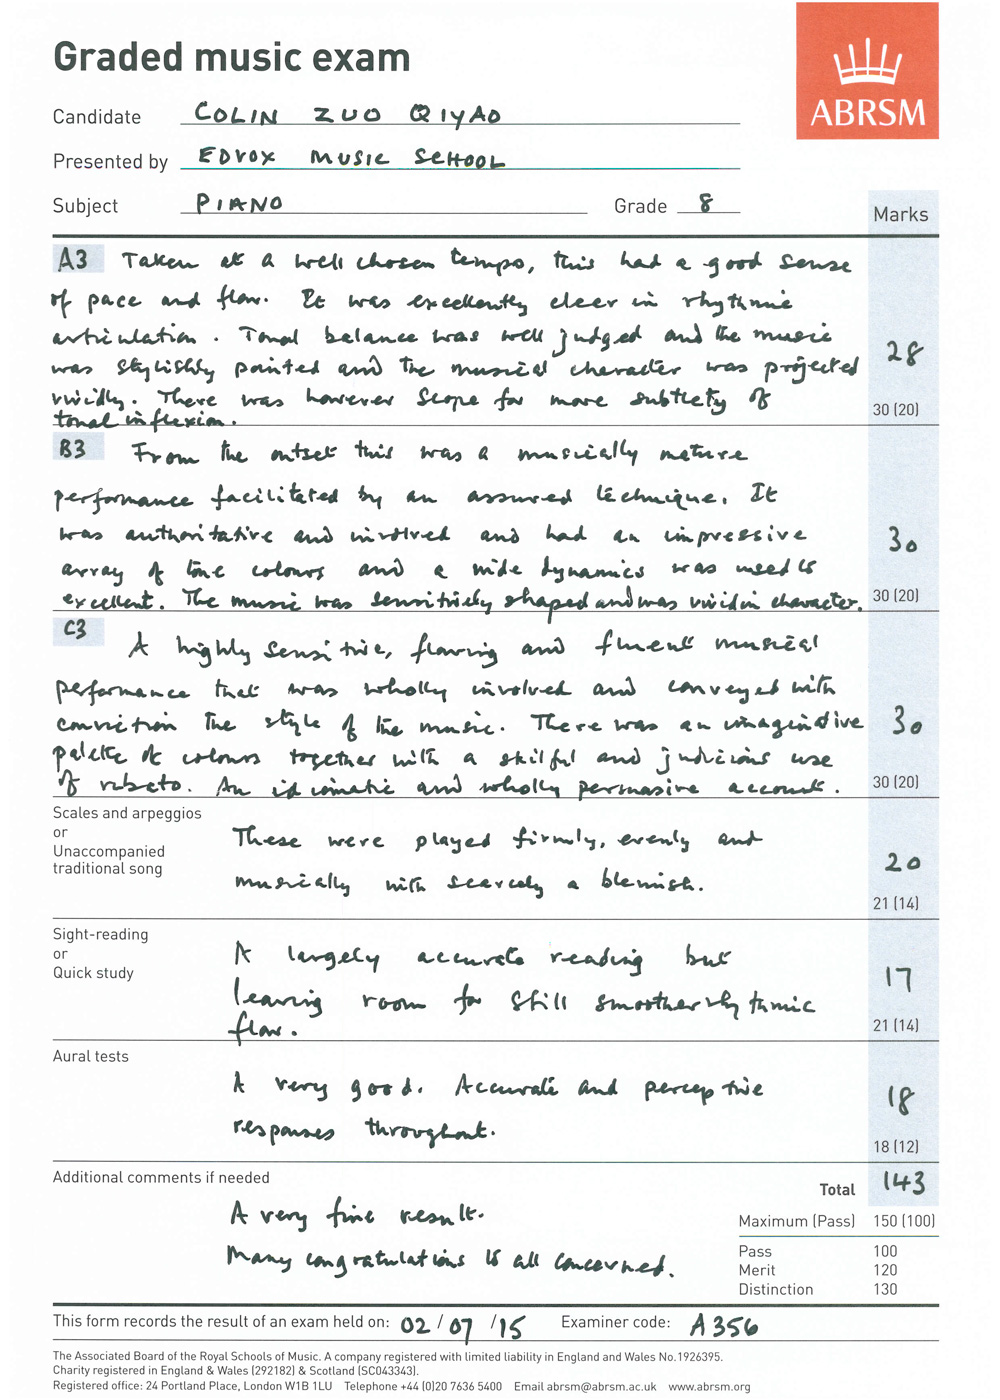 Graded music exam
ABRSM
Candidate COLIN ZUO QIYAO
Presented by EDVOX MUSIC SCHOOL
Subject PIANO Grade 8
Marks
A3 Taken at a well chosen tempo, this had a good sense
of pace and flow. It was excellently clear in rhythmic
articulation. Tonal balance was well judged and the music
was stylishly pointed and the musical character was projected
vividly. There was however scope for more subtlety of
tonal inflexion.
28
30 (20)
B3 From the outset this was a musically mature
performance facilitated by an assured technique. It
was authoritative and involved and had an impressive
array of tone colours and a wide dynamics was used to
excellent. The music was sensitively shaped and was vivid in character.
30
30 (20)
C3 A highly sensitive, flowing and fluent musical
performance that was wholly involved and conveyed with
conviction the style of the music. There was an imaginative
palette of colours together with a skilful and judicious use
of rubato. An idiomatic and wholly persuasive account.
30
30 (20)
Scales and arpeggios
or
Unaccompanied
traditional song
These were played firmly, evenly and
musically with scarcely a blemish.
20
21 (14)
Sight-reading
or
Quick study
A largely accurate reading but
leaving room for still smoother rhythmic
flow.
17
21 (14)
Aural tests
A very good. Accurate and perceptive
responses throughout.
18
18 (12)
Additional comments if needed
A very fine result.
Many congratulations to all concerned.
Total 143
Maximum (Pass) 150 (100)
Pass 100
Merit 120
Distinction 130
This form records the result of an exam held on: 02/07/15 Examiner code: A356
The Associated Board of the Royal Schools of Music. A company registered with limited liability in England and Wales No.1926395.
Charity registered in England & Wales (292182) & Scotland (SC043343).
Registered office: 24 Portland Place, London W1B 1LU Telephone +44 (0)20 7636 5400 Email abrsm@abrsm.ac.uk www.abrsm.org